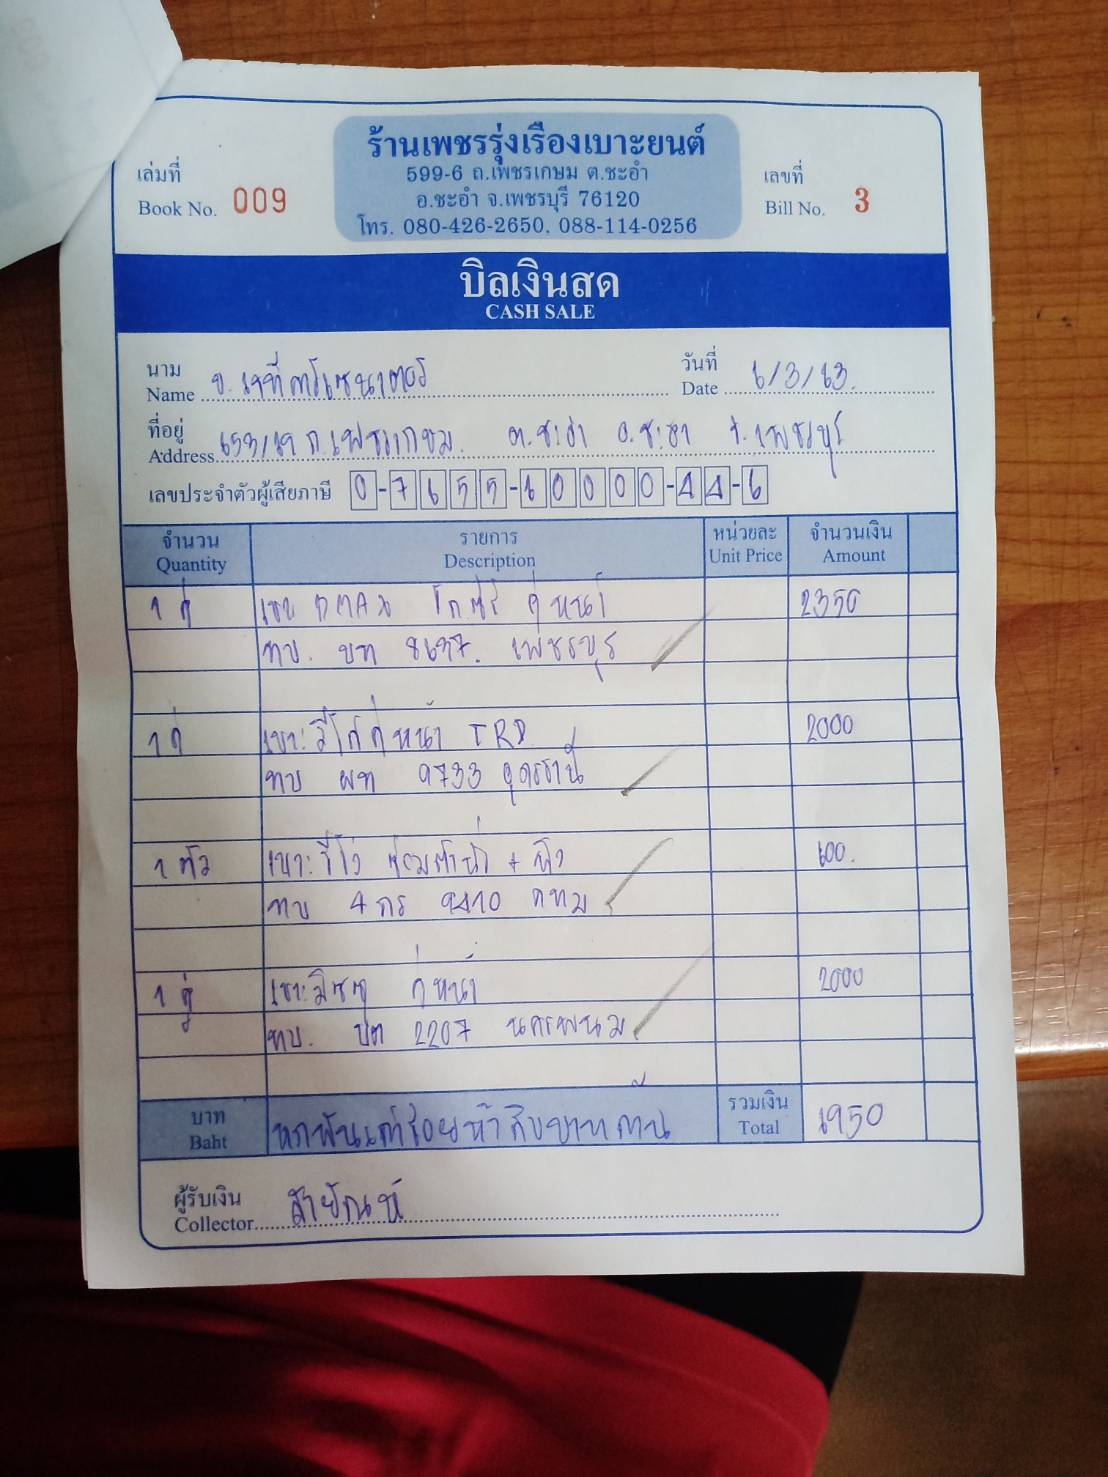 ร้านเพชรรุ่งเรืองเบาะยนต์
599-6 ถ.เพชรเกษม ต.ชะอำ
อ.ชะอำ จ.เพชรบุรี 76120
โทร. 080-426-2650, 088-114-0256
เล่มที่
Book No. 009
เลขที่
Bill No. 3
บิลเงินสด
CASH SALE
นาม
Name
วันที่
Date 6/3/63.
ที่อยู่
Address ถ.เพชรเกษม. ต.ชะอำ อ.ชะอำ จ.เพชรบุรี
เลขประจำตัวผู้เสียภาษี 0-7655-60000-44-6
จำนวน รายการ หน่วยละ จำนวนเงิน
Quantity Description Unit Price Amount
1 คู่ เบาะ DMAX คู่หน้า 2350
ทบ. บท 8637. เพชรบุรี
1 คู่ เบาะวีโก้คู่หน้า TRD 2000
ทบ ผท 9733 อุดรธานี
1 ตัว เบาะวีโก้ + พิง 600.
ทบ 4 กร 9410 กทม
1 คู่ เบาะมิซซู คู่หน้า 2000
ทบ. บต 2207 นครพนม
บาท
Baht หกพันเก้าร้อยห้าสิบบาทถ้วน
รวมเงิน
Total 6950
ผู้รับเงิน
Collector สายัณห์